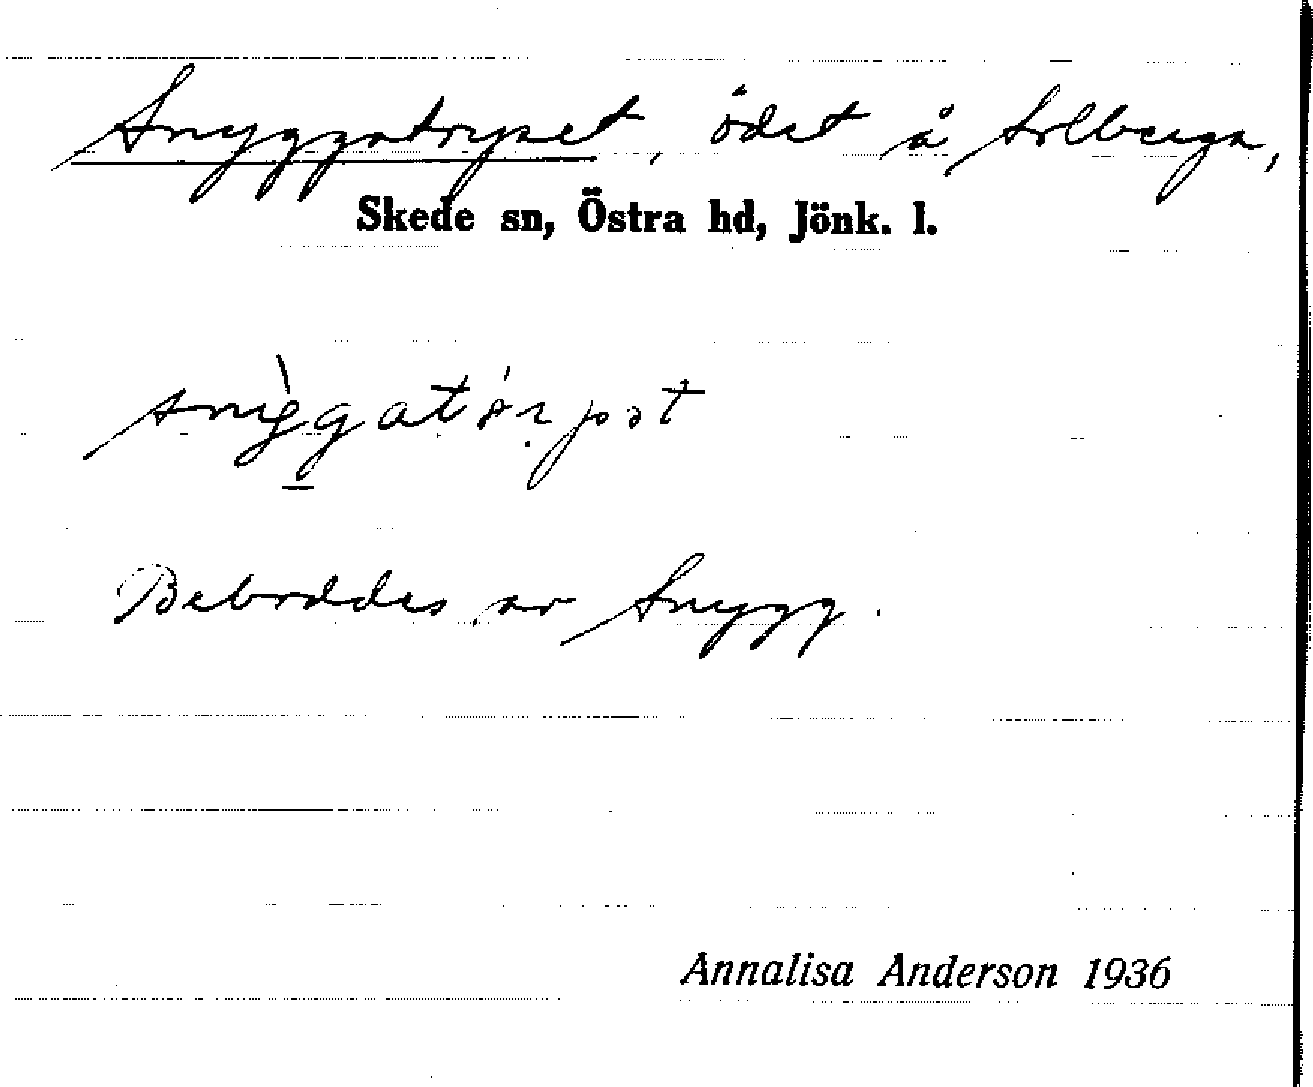 Snyggatorpet, ödet å Solberga,
Skede sn, Östra hd, Jönk. l.
Beboddes av Snygg.
Annalisa Anderson 1936